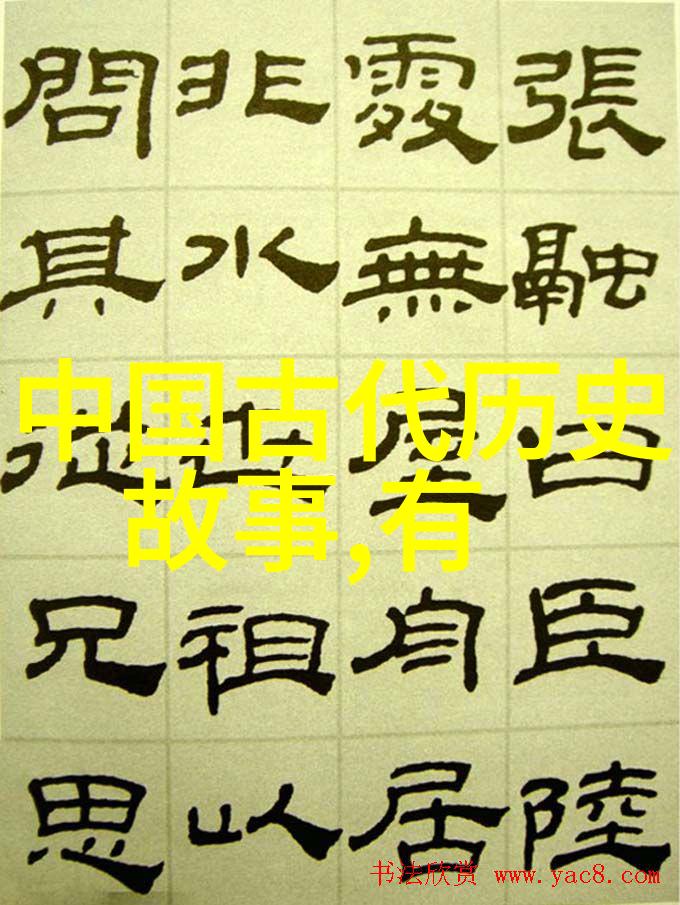 張融曰臣陸
處無屋舟居
非水世祖以
問其從兄思
中国古代历史
故事,有
书法欣赏 www.yac8.com